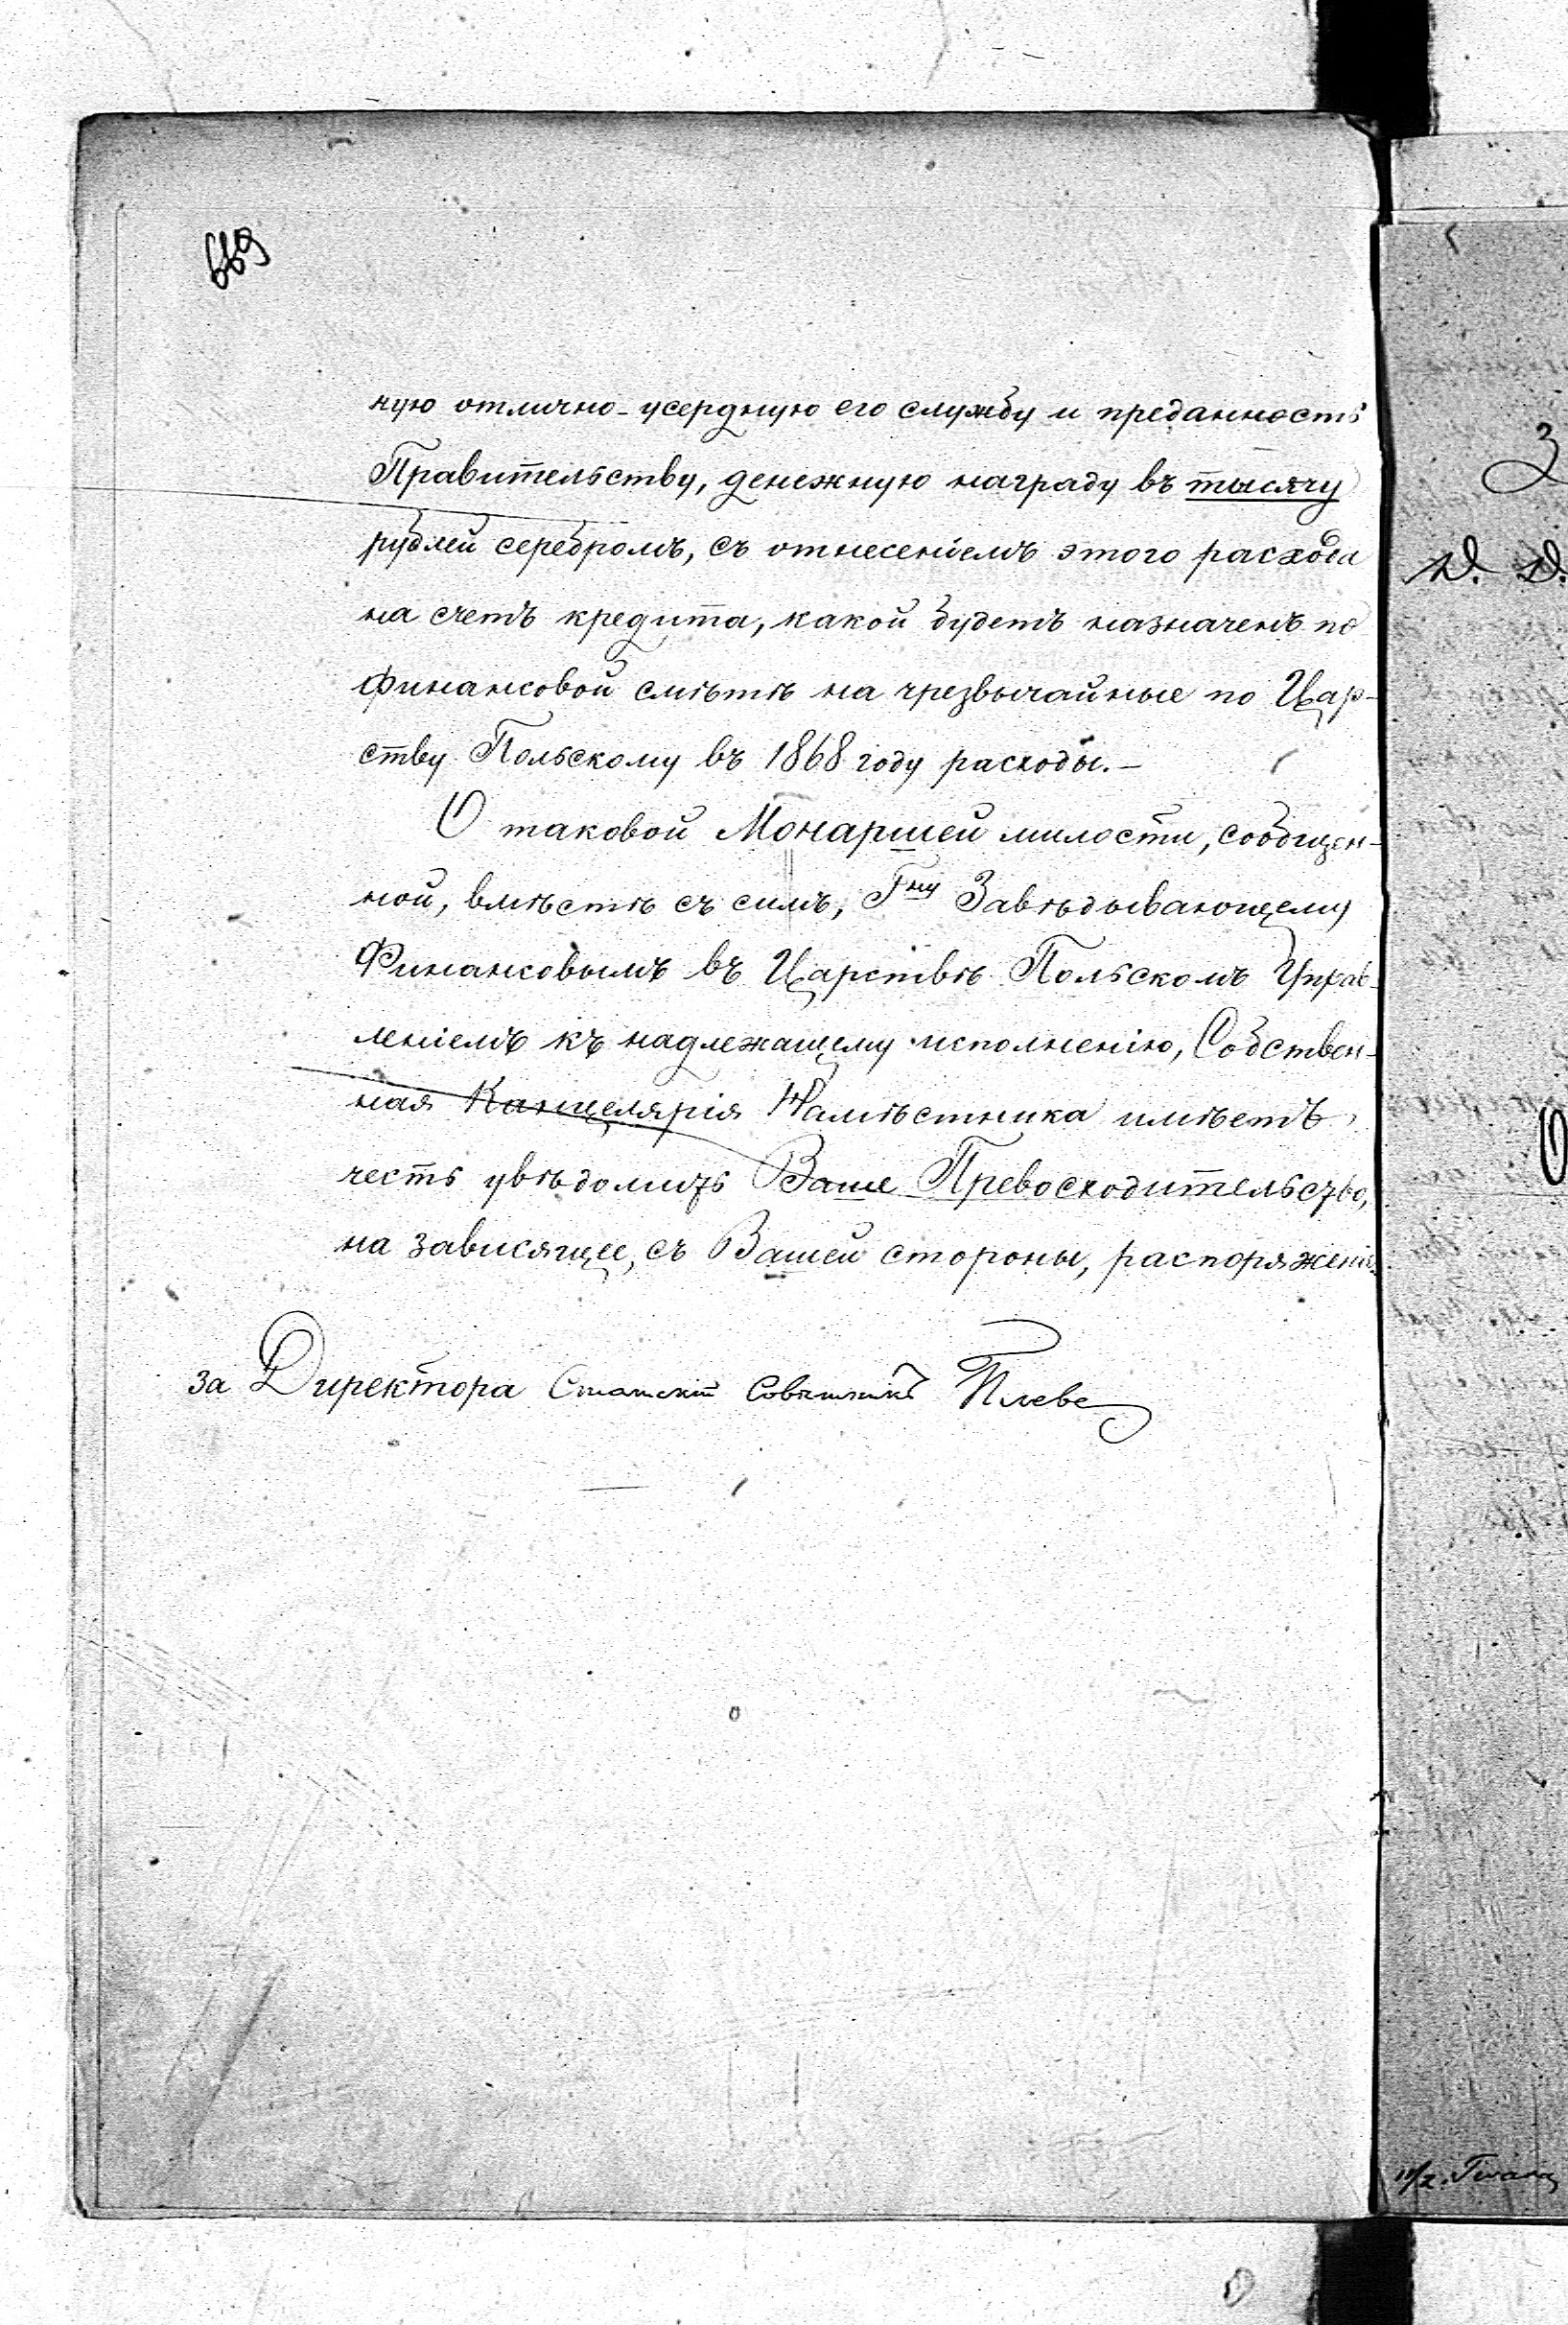 669
ную отлично-усердную его службу и преданность
Правительству, денежную награду въ тысячу
рублей серебромъ, съ отнесеніемъ этого расхода
на счетъ кредита, какой будетъ назначенъ по
финансовой смѣтѣ на чрезвычайные по Цар-
ству Польскому въ 1868 году расходы.-
О таковой Монаршей милости, сообщен-
ной, вмѣстѣ съ симъ, Гну Завѣдывающему
Финансовымъ въ Царствѣ Польскомъ Управ-
леніемъ къ надлежащему исполненію, Собствен-
ная Канцелярія Намѣстника имѣетъ
честь увѣдомить Ваше Превосходительство,
на зависящее, съ Вашей стороны, распоряженіе.
За Директора Статскій Совѣтникъ Плеве